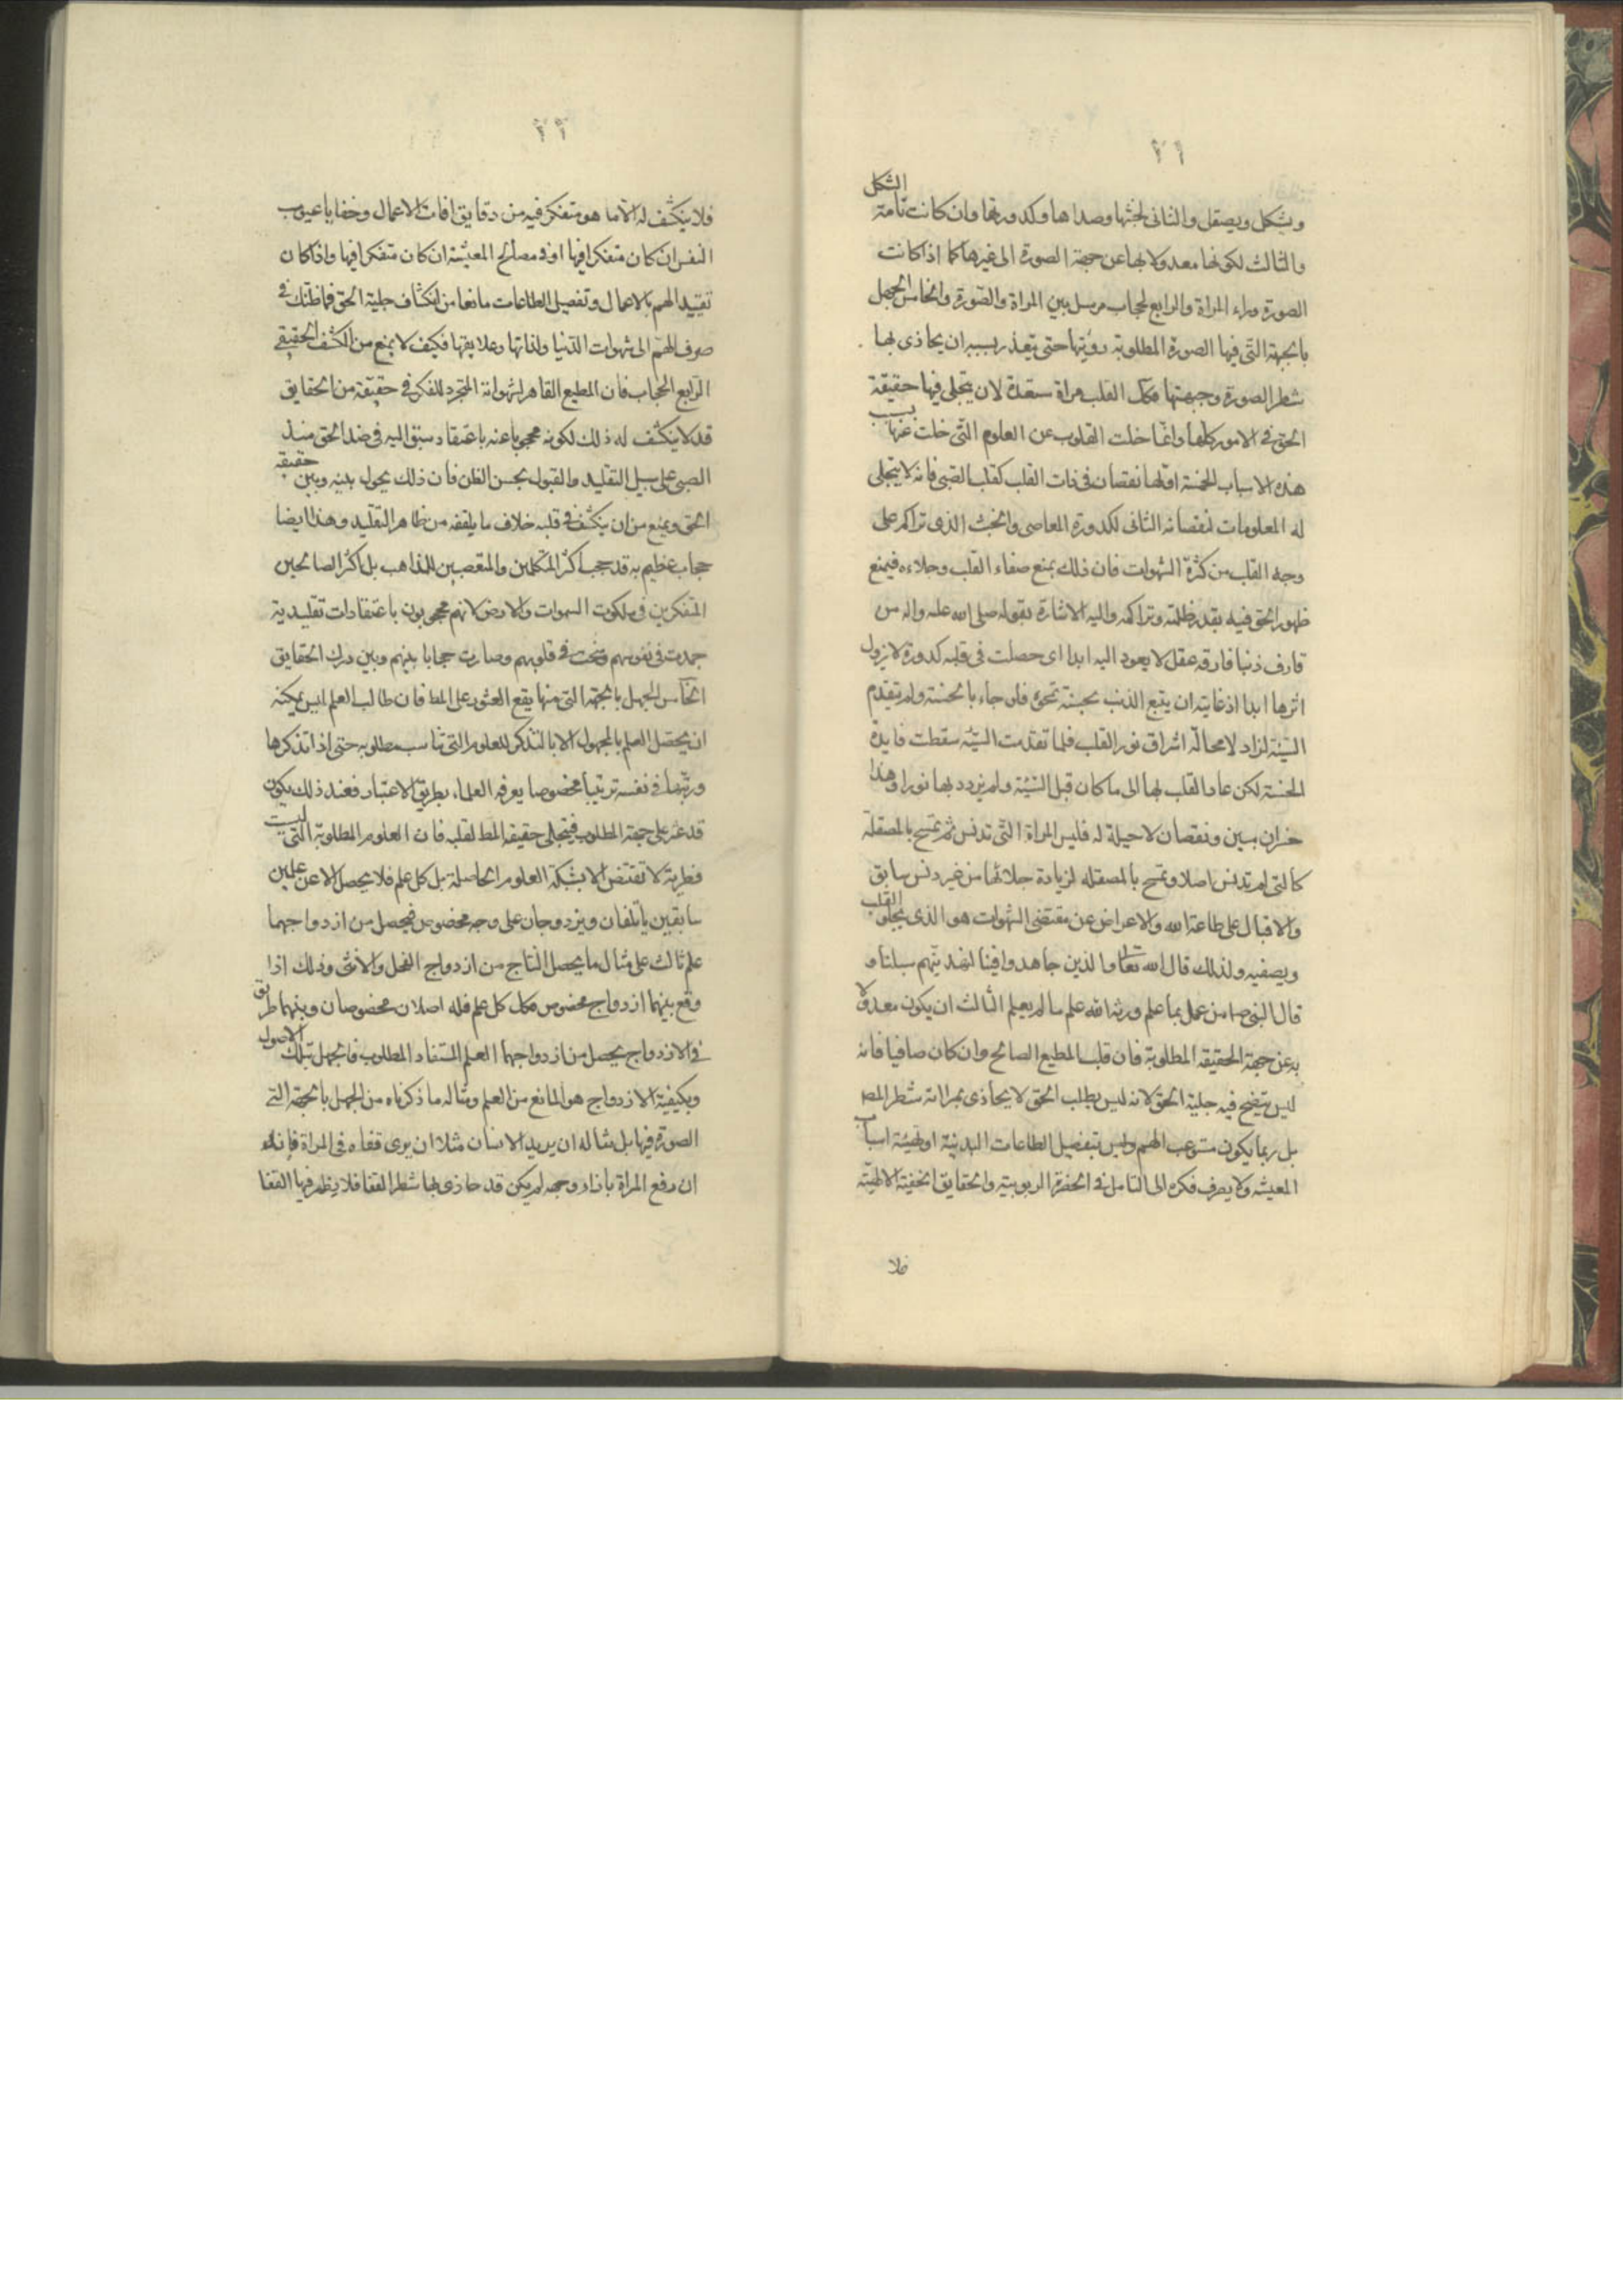 ٢١
ويشكل ويصقل والثانى لخبثها وصداها وكدورتها وان كانت تامة الشكل
والثالث لكونها معدولا بها عن جهة الصورة الى غيرها كما اذا كانت
الصورة وراء المراة والرابع لحجاب مرسل بين المراة والصورة والخامس الجهل
بالجهة التى فيها الصورة المطلوبة رؤيتها حتى يتعذر بسببه ان يحاذى بها
شطر الصورة وجهتها فكك القلب مراة مستعدة لان يتجلى فيها حقيقة
الحق فى الامور كلها وانما خلت القلوب عن العلوم التى خلت عنها بسبب
هذه الاسباب الخمسة اولها نقصان فى ذات القلب كقلب الصبى فانه لا يتجلى
له المعلومات لنقصانه الثانى لكدورة المعاصى والخبث الذى تراكم على
وجه القلب من كثرة الشهوات فان ذلك يمنع صفاء القلب وجلاءه فيمنع
ظهور الحق فيه بقدر ظلمته وتراكمه واليه الاشارة بقوله صلى الله عليه واله من
قارف ذنبا فارقه عقل لا يعود اليه ابدا اى حصلت فى قلبه كدورة لا يزول
اثرها ابدا اذ غايته ان يتبع الذنب بحسنة تمحوه فلو جاء بالحسنة ولم يتقدم
السيئة لزاد لا محالة اشراق نور القلب فلما تقدمت السيئة سقطت فايدة
الحسنة لكن عاد القلب بها الى ما كان قبل السيئة ولم يزدد بها نورا وهذا
خسران مبين ونقصان لا حيلة له فليس المراة التى تدنس ثم تمسح بالمصقلة
كالتى لم تدنس اصلا وتمسح بالمصقله لزيادة جلائها من غير دنس سابق
والاقبال على طاعة الله والاعراض عن مقتضى الشهوات هو الذى يجلو القلب
ويصفيه ولذلك قال الله تعالى والذين جاهدوا فينا لنهدينهم سبلنا و
قال النبى ص من عمل بما علم ورثه الله علم ما لم يعلم الثالث ان يكون معدولا
به عن جهة الحقيقه المطلوبة فان قلب المطيع الصالح وان كان صافيا فانه
ليس يتضح فيه جلية الحق لانه ليس يطلب الحق لا يحاذى بمراته شطر المط
بل ربما يكون مستوعب الهم وليس بتفصيل الطاعات البدنية او تهيئة اسباب
المعيشه ولا يصرف فكره الى التامل فى الحضرة الربوبيه والحقايق الخفية الالهية
فلا
٢٢
فلا ينكشف له الا ما هو متفكر فيه من دقايق افات الاعمال وخفايا عيوب
النفس ان كان متفكرا فيها او فى مصالح المعيشة ان كان متفكرا فيها واذا كان
تقييد الهم بالاعمال وتفصيل الطاعات مانعا من انكشاف جلية الحق فما ظنك فى
صرف الهم الى شهوات الدنيا ولذاتها وعلايقها فكيف لا يمنع من الكشف الحقيقى
الرابع الحجاب فان المطيع القاهر لشهواته المتجرد للفكر فى حقيقة من الحقايق
قد لا ينكشف له ذلك لكونه محجوبا عنه باعتقاد سبق اليه فى ضد الحق منذ
الصبى على سبيل التقليد والقبول بحسن الظن فان ذلك يحول بينه وبين حقيقه
الحق ويمنع من ان ينكشف فى قلبه خلاف ما يلقفه من ظاهر التقليد وهذا ايضا
حجاب عظيم به قد حجب اكثر المتكلمين والمتعصبين للمذاهب بل اكثر الصالحين
المتفكرين فى ملكوت السموات والارض لانهم محجوبون باعتقادات تقليدية
جمدت فى نفوسهم ورسخت فى قلوبهم وصارت حجابا بينهم وبين درك الحقايق
الخامس الجهل بالجهة التى منها يقع العثور على المط فان طالب العلم ليس يمكنه
ان يحصل العلم بالمجهول الا بالتذكر للعلوم التى تناسب مطلوبه حتى اذا تذكرها
ورتبها فى نفسه ترتيبا مخصوصا يعرفه العلماء بطريق الاعتبار فعند ذلك يكون
قد عثر على جهة المطلوب فيتجلى حقيقه المط لقلبه فان العلوم المطلوبة التى ليست
فطرية لا تقتنص الا بشبكة العلوم الحاصلة بل كل علم فلا يحصل الا عن علمين
سابقين ياتلفان ويزدوجان على وجه مخصوص فيحصل من ازدواجهما
علم ثالث على مثال ما يحصل النتاج من ازدواج الفحل والانثى وذلك اذا
وقع بينهما ازدواج مخصوص فكك كل علم فله اصلان مخصوصان وبينهما طريق
فى الازدواج يحصل من ازدواجهما العلم المستفاد المطلوب فالجهل بتلك الاصول
وبكيفية الازدواج هو المانع من العلم ومثاله ما ذكرناه من الجهل بالجهة التى
الصورة فيها بل مثاله ان يريد الانسان مثلا ان يرى قفاه فى المراة فانه
ان رفع المراة بازاء وجهه لم يكن قد حاذى بها شطر القفا فلا يظهر فيها القفا